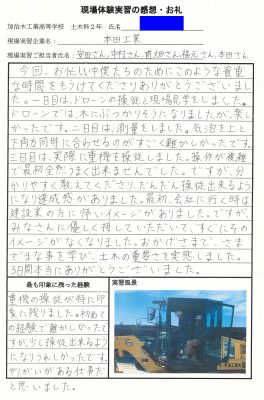 現場体験実習の感想・お礼
加治木工業高等学校 土木科2年 氏名
現場実習企業名: 本田工業
現場実習ご担当者氏名: 安田さん,中村さん,前畑さん,福元さん,本田さん
今回、お忙しい中僕たちのためにこのような貴重
な時間をもうけてくださりありがとうございまし
た。一日目は、ドローンの操縦と現場見学をしました。
ドローンでは、木にぶつかりそうになりましたが、楽し
かったです。二日目は、測量をしました。気泡を上と
下両方同時に合わせるのがすごく難しかったです。
三日目は、実際に重機を操縦しました。操作が複雑
で最初全然うまく出来ませんでした。ですが、分
かりやすく教えてくださりだんだん操縦出来るよう
になり達成感がありました。最初、会社に行く時は
建設業の方に怖いイメージがありました。ですが、
みなさんに優しく接していただいて、すぐにその
イメージがなくなりました。おかげさまで、さま
ざまな事を学び、土木の重要さを実感しました。
3日間本当にありがとうございました。
最も印象に残った経験
重機の操縦が特に印
象に残りました。初めて
の経験で難しかったで
すが、少し操縦出来るよう
になりうれしかったです。
やりがいがある仕事だ
と思いました。
実習風景